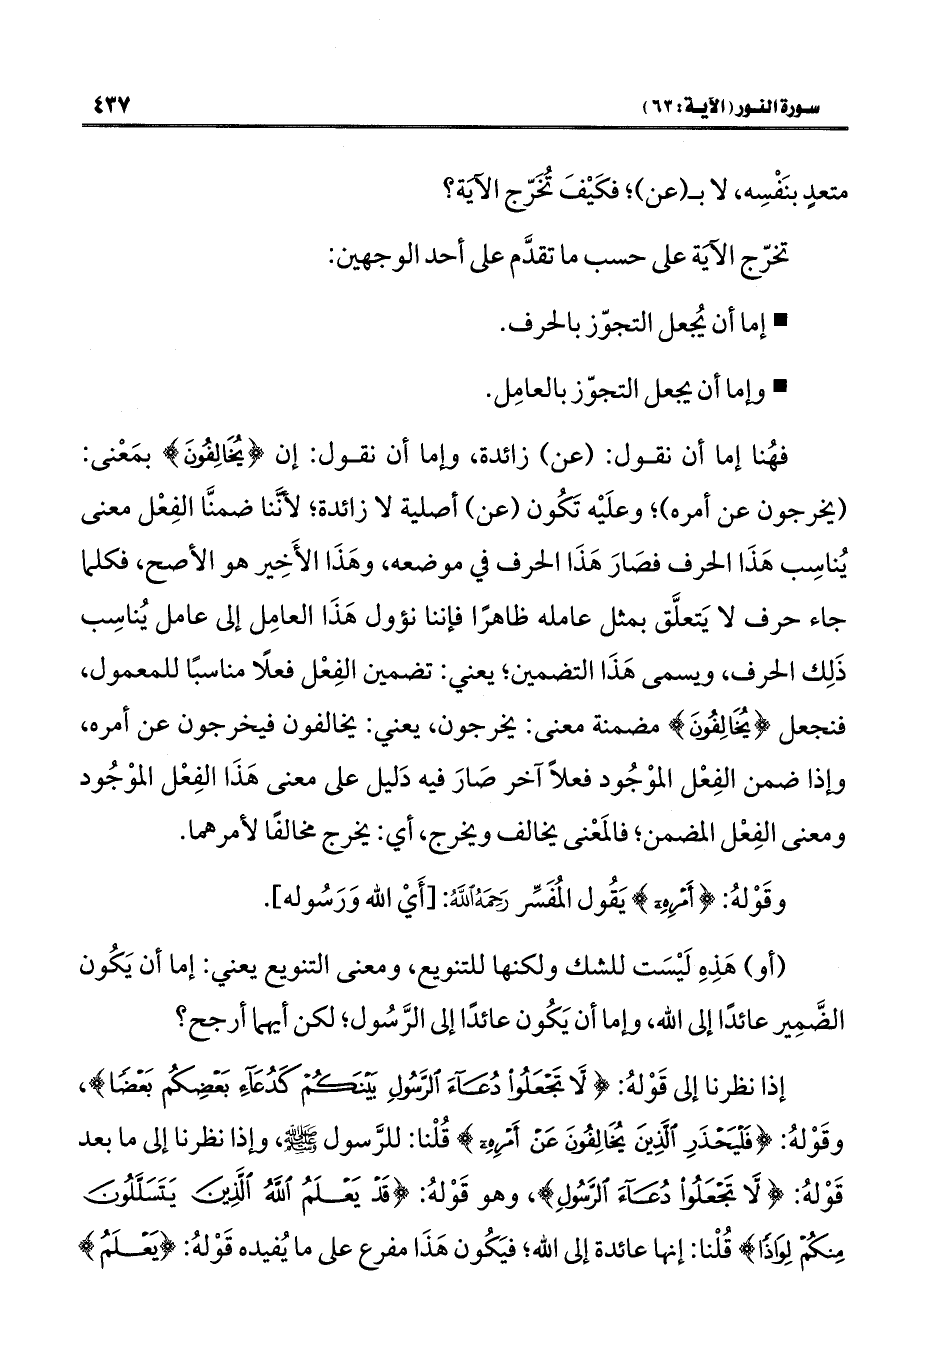 سورة النور (الآية: ٦٣)
٤٣٧
متعدٍ بنَفْسِه، لا بـ(عن)؛ فكَيْفَ تُخَرّج الآيَة؟
تخرّج الآيَة على حسب ما تقدَّم على أحد الوجهين:
■ إما أن يُجعل التجوّز بالحرف.
■ وإما أن يجعل التجوّز بالعامِل.
فهُنا إما أن نقول: (عن) زائدة، وإما أن نقول: إن ﴿يُخَالِفُونَ﴾ بمَعْنى:
(يخرجون عن أمره)؛ وعلَيْه تَكُون (عن) أصلية لا زائدة؛ لأنَّنا ضمنَّا الفِعْل معنى
يُناسِب هَذَا الحرف فصَارَ هَذَا الحرف في موضعه، وهَذَا الأَخِير هو الأصح، فكلما
جاء حرف لا يَتعلَّق بمثل عامله ظاهرًا فإننا نؤول هَذَا العامِل إلى عامل يُناسِب
ذَلِك الحرف، ويسمى هَذَا التضمين؛ يعني: تضمين الفِعْل فعلًا مناسبًا للمعمول،
فنجعل ﴿يُخَالِفُونَ﴾ مضمنة معنى: يخرجون، يعني: يخالفون فيخرجون عن أمره،
وإذا ضمن الفِعْل المَوْجُود فعلاً آخر صَارَ فيه دَليل على معنى هَذَا الفِعْل المَوْجُود
ومعنى الفِعْل المضمن؛ فالمَعْنى يخالف ويخرج، أي: يخرج مخالفًا لأمرهما.
وقَوْلهُ: ﴿أَمْرِهِۦٓ﴾ يَقُول المُفَسِّر رَحِمَهُ ٱللَّهُ: [أَيْ الله وَرَسُوله].
(أو) هَذِهِ لَيْسَت للشك ولكنها للتنويع، ومعنى التنويع يعني: إما أن يَكُون
الضَّمِير عائدًا إلى الله، وإما أن يَكُون عائدًا إلى الرَّسُول؛ لكن أيهما أرجح؟
إذا نظرنا إلى قَوْلهُ: ﴿لَّا تَجْعَلُوا۟ دُعَآءَ ٱلرَّسُولِ بَيْنَكُمْ كَدُعَآءِ بَعْضِكُم بَعْضًا﴾،
وقَوْلهُ: ﴿فَلْيَحْذَرِ ٱلَّذِينَ يُخَالِفُونَ عَنْ أَمْرِهِۦٓ﴾ قُلْنا: للرَّسول ﷺ، وإذا نظرنا إلى ما بعد
قَوْلهُ: ﴿لَّا تَجْعَلُوا۟ دُعَآءَ ٱلرَّسُولِ﴾، وهو قَوْلهُ: ﴿قَدْ يَعْلَمُ ٱللَّهُ ٱلَّذِينَ يَتَسَلَّلُونَ
مِنكُمْ لِوَاذًا﴾ قُلْنا: إنها عائدة إلى الله؛ فيَكُون هَذَا مفرع على ما يُفيده قَوْلهُ: ﴿يَعْلَمُ﴾